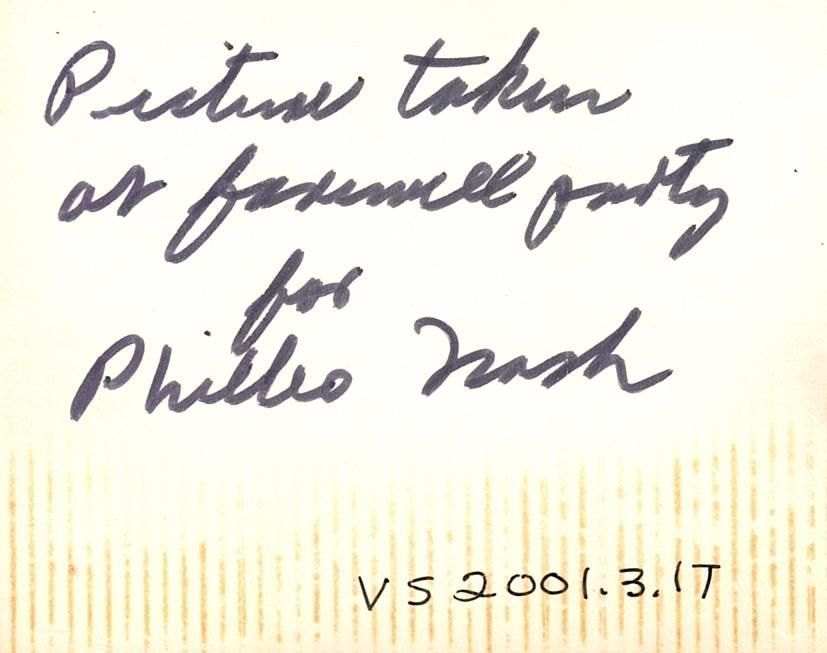 Picture taken
at farewell party
for
Philleo Nash
VS2001.3.1T